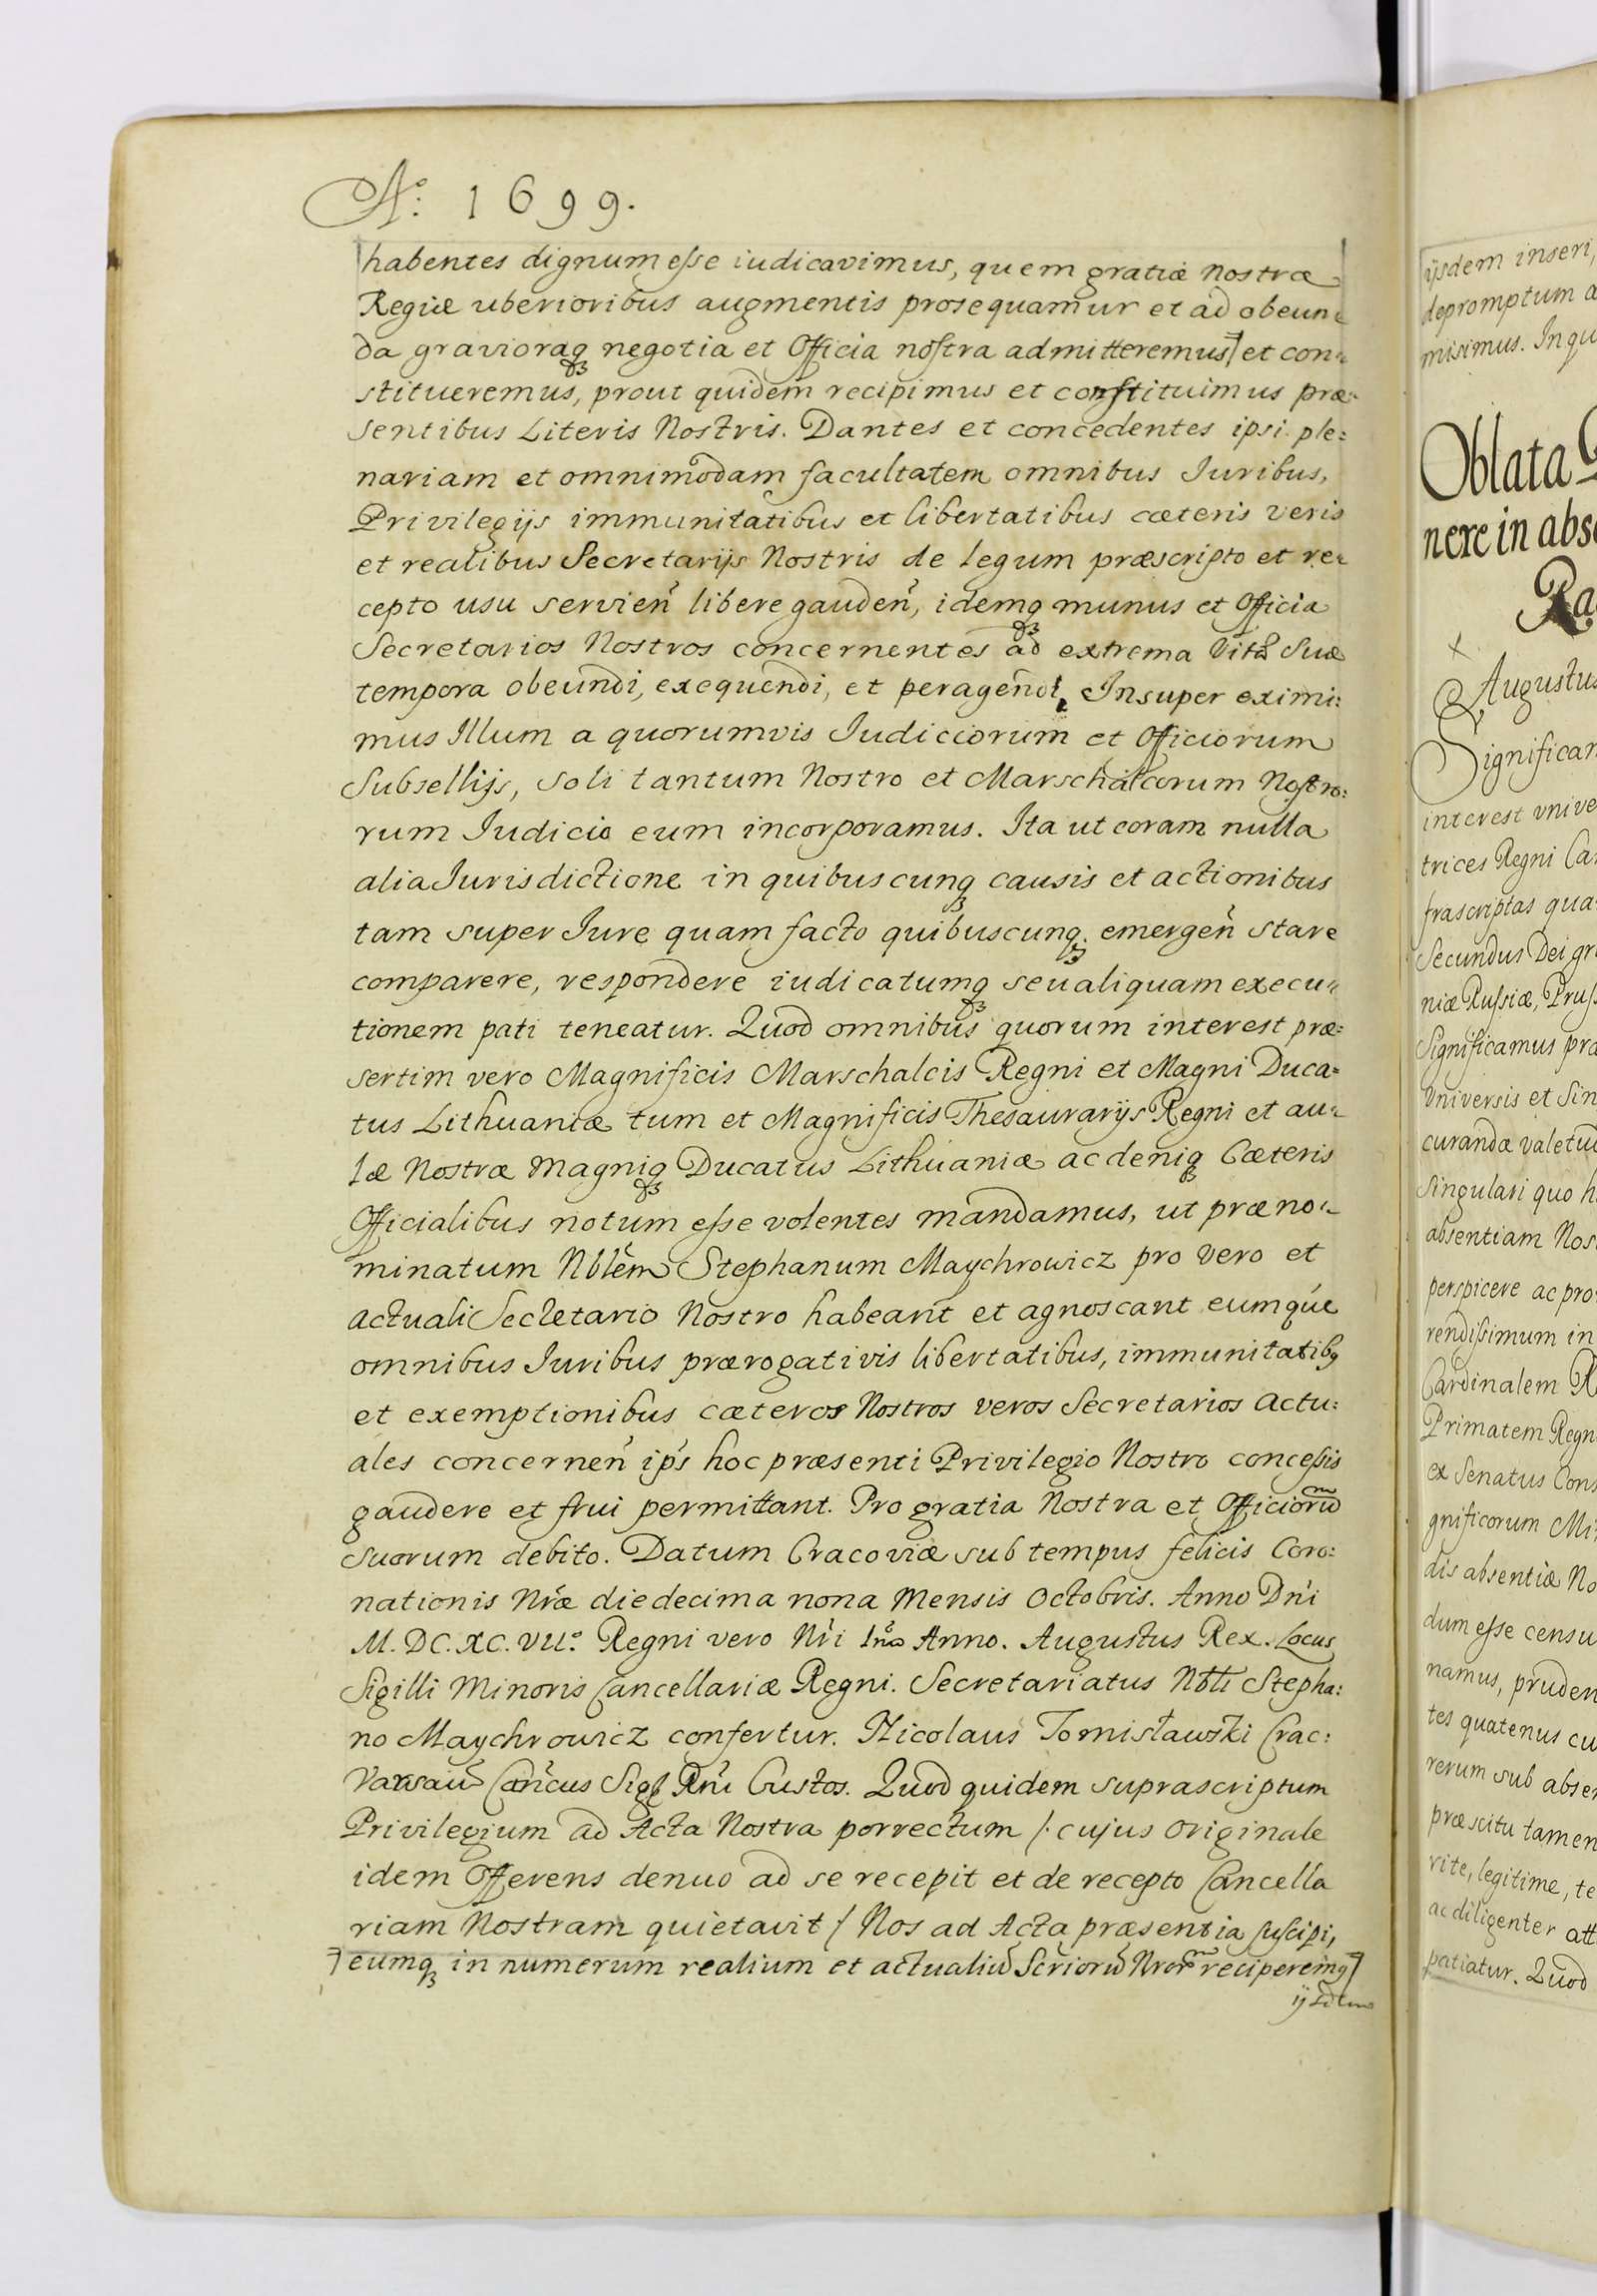 Aº: 1699.
habentes dignum eſse iudicavimus, quem gratiæ Nostræ
Regiæ uberioribus augmentis prosequamur et ad obeun:
da gravioraq₃ negotia et Officia noſtra admitteremus ꓶ et con:
stitueremus, prout quidem recipimus et conſtituimus præ:
sentibus Literis Nostris. Dantes et concedentes ipsi ple:
nariam et omnimodam facultatem omnibus Iuribus,
Privilegijs immunitatibus et libertatibus cæteris veris
et realibus Secretarijs Nostris de legum præscripto et re:
cepto usu servien̄ libere gauden̄, idemq₃ munus et Officia
Secretarios Nostros concernentes ad extrema Vitæ Suæ
tempora obeundi, exequendi, et peragendi, Insuper eximi:
mus Illum a quorumvis Iudiciorum et Officiorum
Subsellijs, soli tantum Nostro et Marschalcorum Noſtro:
rum Iudicio eum incorporamus. Ita ut coram nulla
alia Iurisdictione in quibuscunq₃ causis et actionibus
tam super Iure quam facto quibuscunq₃ emergen̄ stare
comparere, respondere iudicatumq₃ seu aliquam execu:
tionem pati teneatur. Quod omnibus quorum interest præ:
sertim vero Magnificis Marschalcis Regni et Magni Duca:
tus Lithuaniæ tum et Magnificis Thesaurarijs Regni et au:
læ Nostræ Magniq₃ Ducatus Lithuaniæ ac deniq₃ Cæteris
Officialibus notum eſse volentes mandamus, ut præno:
minatum Nblēm Stephanum Maychrowicz pro vero et
actuali Secretario Nostro habeant et agnoscant eumque
omnibus Iuribus prærogativis libertatibus, immunitatibꝰ
et exemptionibus cæteros Nostros veros Secretarios Actu:
ales concernen̄ ip̄s hoc præsenti Privilegio Nostro conceſsis
gaudere et frui permittant. Pro gratia Nostra et Officiorū
suorum debito. Datum Cracoviæ sub tempus felicis Coro:
nationis Nr̄æ die decima nona Mensis Octobris. Anno Dn̄i
M. DC. XC. VII.º Regni vero Nr̄i Imo Anno. Augustus Rex. Locus
Sigilli Minoris Cancellariæ Regni. Secretariatus Nbli Stepha:
no Maychrowicz confertur. Nicolaus Tomisławski Crac:
Varsav̄ Can̄cus Sigl Rn̄i Custos. Quod quidem suprascriptum
Privilegium ad Acta Nostra porrectum /. cujus originale
idem Offerens denuo ad se recepit et de recepto Cancella
riam Nostram quietavit / Nos ad Acta præsentia ſuſcipi,
ꓶ eumq₃ in numerum realium et actualiū Sc̄riorū Nror̄ reciperemꝰ ꓶ
ijsdem
ijsdem inseri,
depromptum a
misimus. In qu
Oblata
nere in abs
Ra
Augustus
Significa
interest vnive
trices Regni Ca
frascriptas qua
Secundus Dei gr
niæ Ruſsiæ, Pruſ
Significamus pra
Vniversis et Sin
curanda valetud
Singulari quo h
absentiam Nos
perspicere ac pro
rendiſsimum in
Cardinalem R
Primatem Regn
ex Senatus Cons
gnificorum Mi
dis absentiæ No
dum eſse censu
namus, pruden
tes quatenus cu
rerum sub abse
præscitu tamen
rite, legitime, te
ac diligenter att
patiatur. Quod